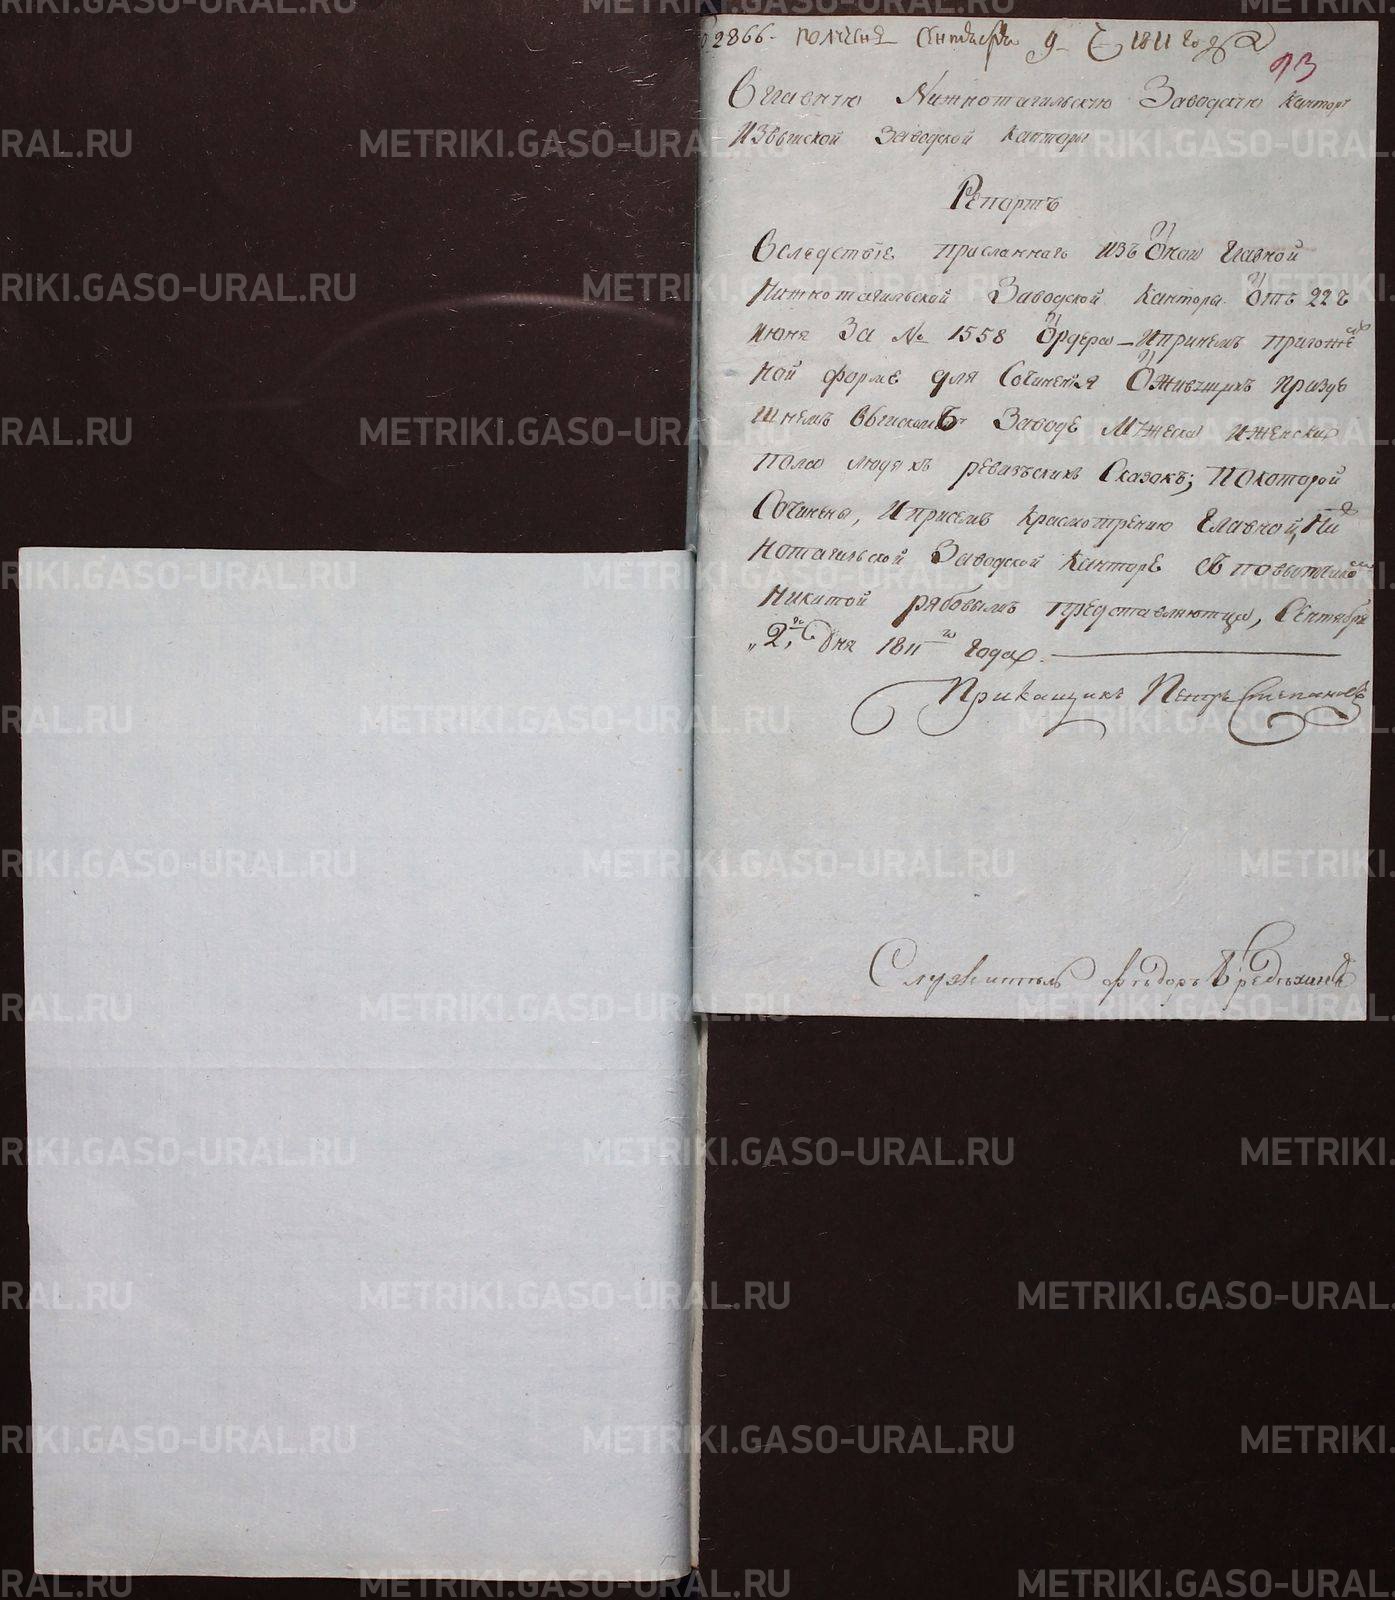 2866. получен Сентября 9 1811 года
93
В Главную Нижнотагильскую Заводскую Кантору
Из Выйской Заводской Канторы
Репортъ
Вследствіе присланнаго изъ Оной Главной
Нижнотагильской Заводской Канторы Отъ 22 ч
Июня За № 1558 Ордера — и при немъ приложен
ной форме для Сочинения О живущихъ при зде
шнемъ Выйскомъ Заводе мужеска и женска
пола людяхъ ревизъскихъ Сказокъ; по которой
Сочинены, и при семъ к расмотрению Главной Ниж
нотагильской Заводской Канторе с повытчикомъ
Никитой рябовымъ представляютца, Сентября
„2 го дня 1811 го года.
Прикащикъ Петръ Степановъ
Служитель Федоръ
METRIKI.GASO-URAL.RU